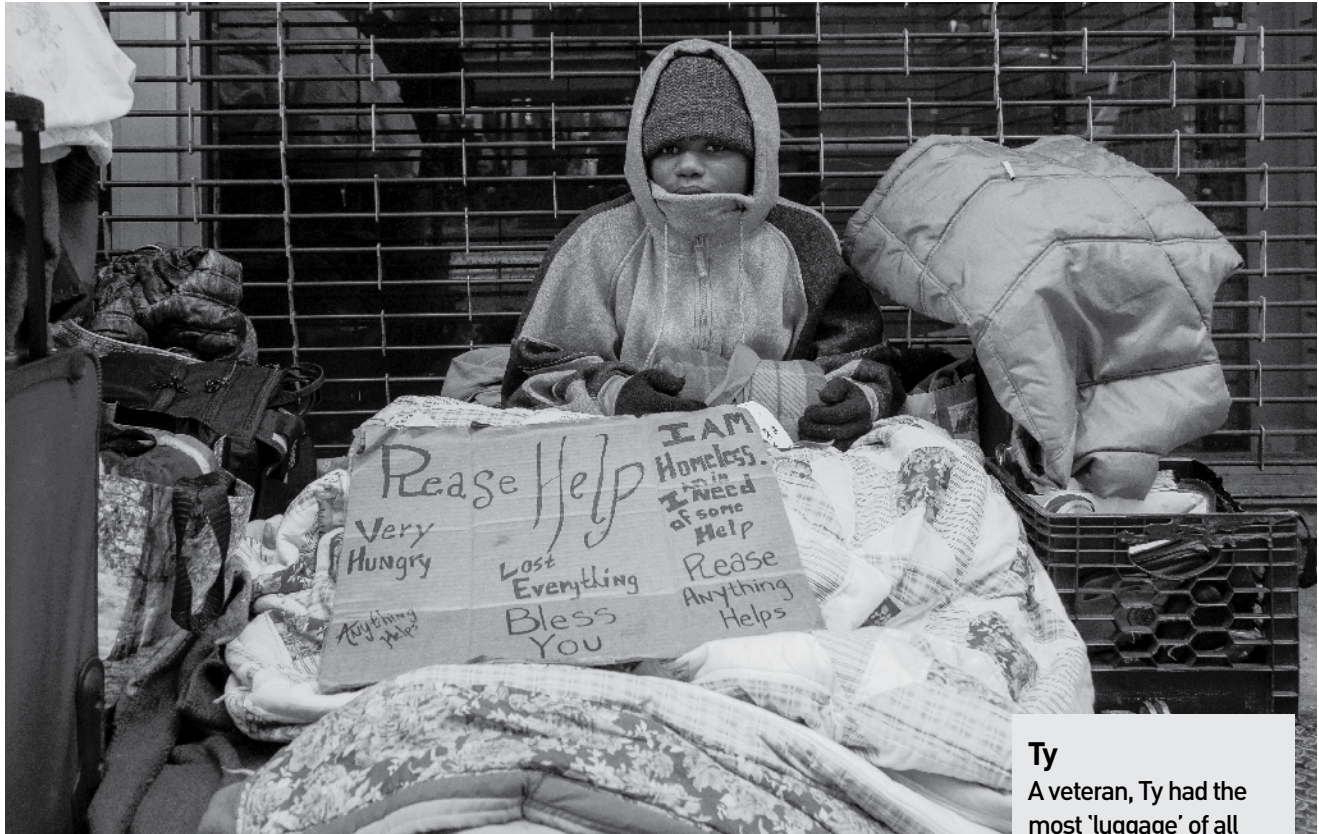 Please Help
Very
Hungry
Anything
Helps
Lost
Everything
Bless
You
I AM
Homeless.
I am in
Need
of some
Help
Please
Anything
Helps
Ty
A veteran, Ty had the
most 'luggage' of all